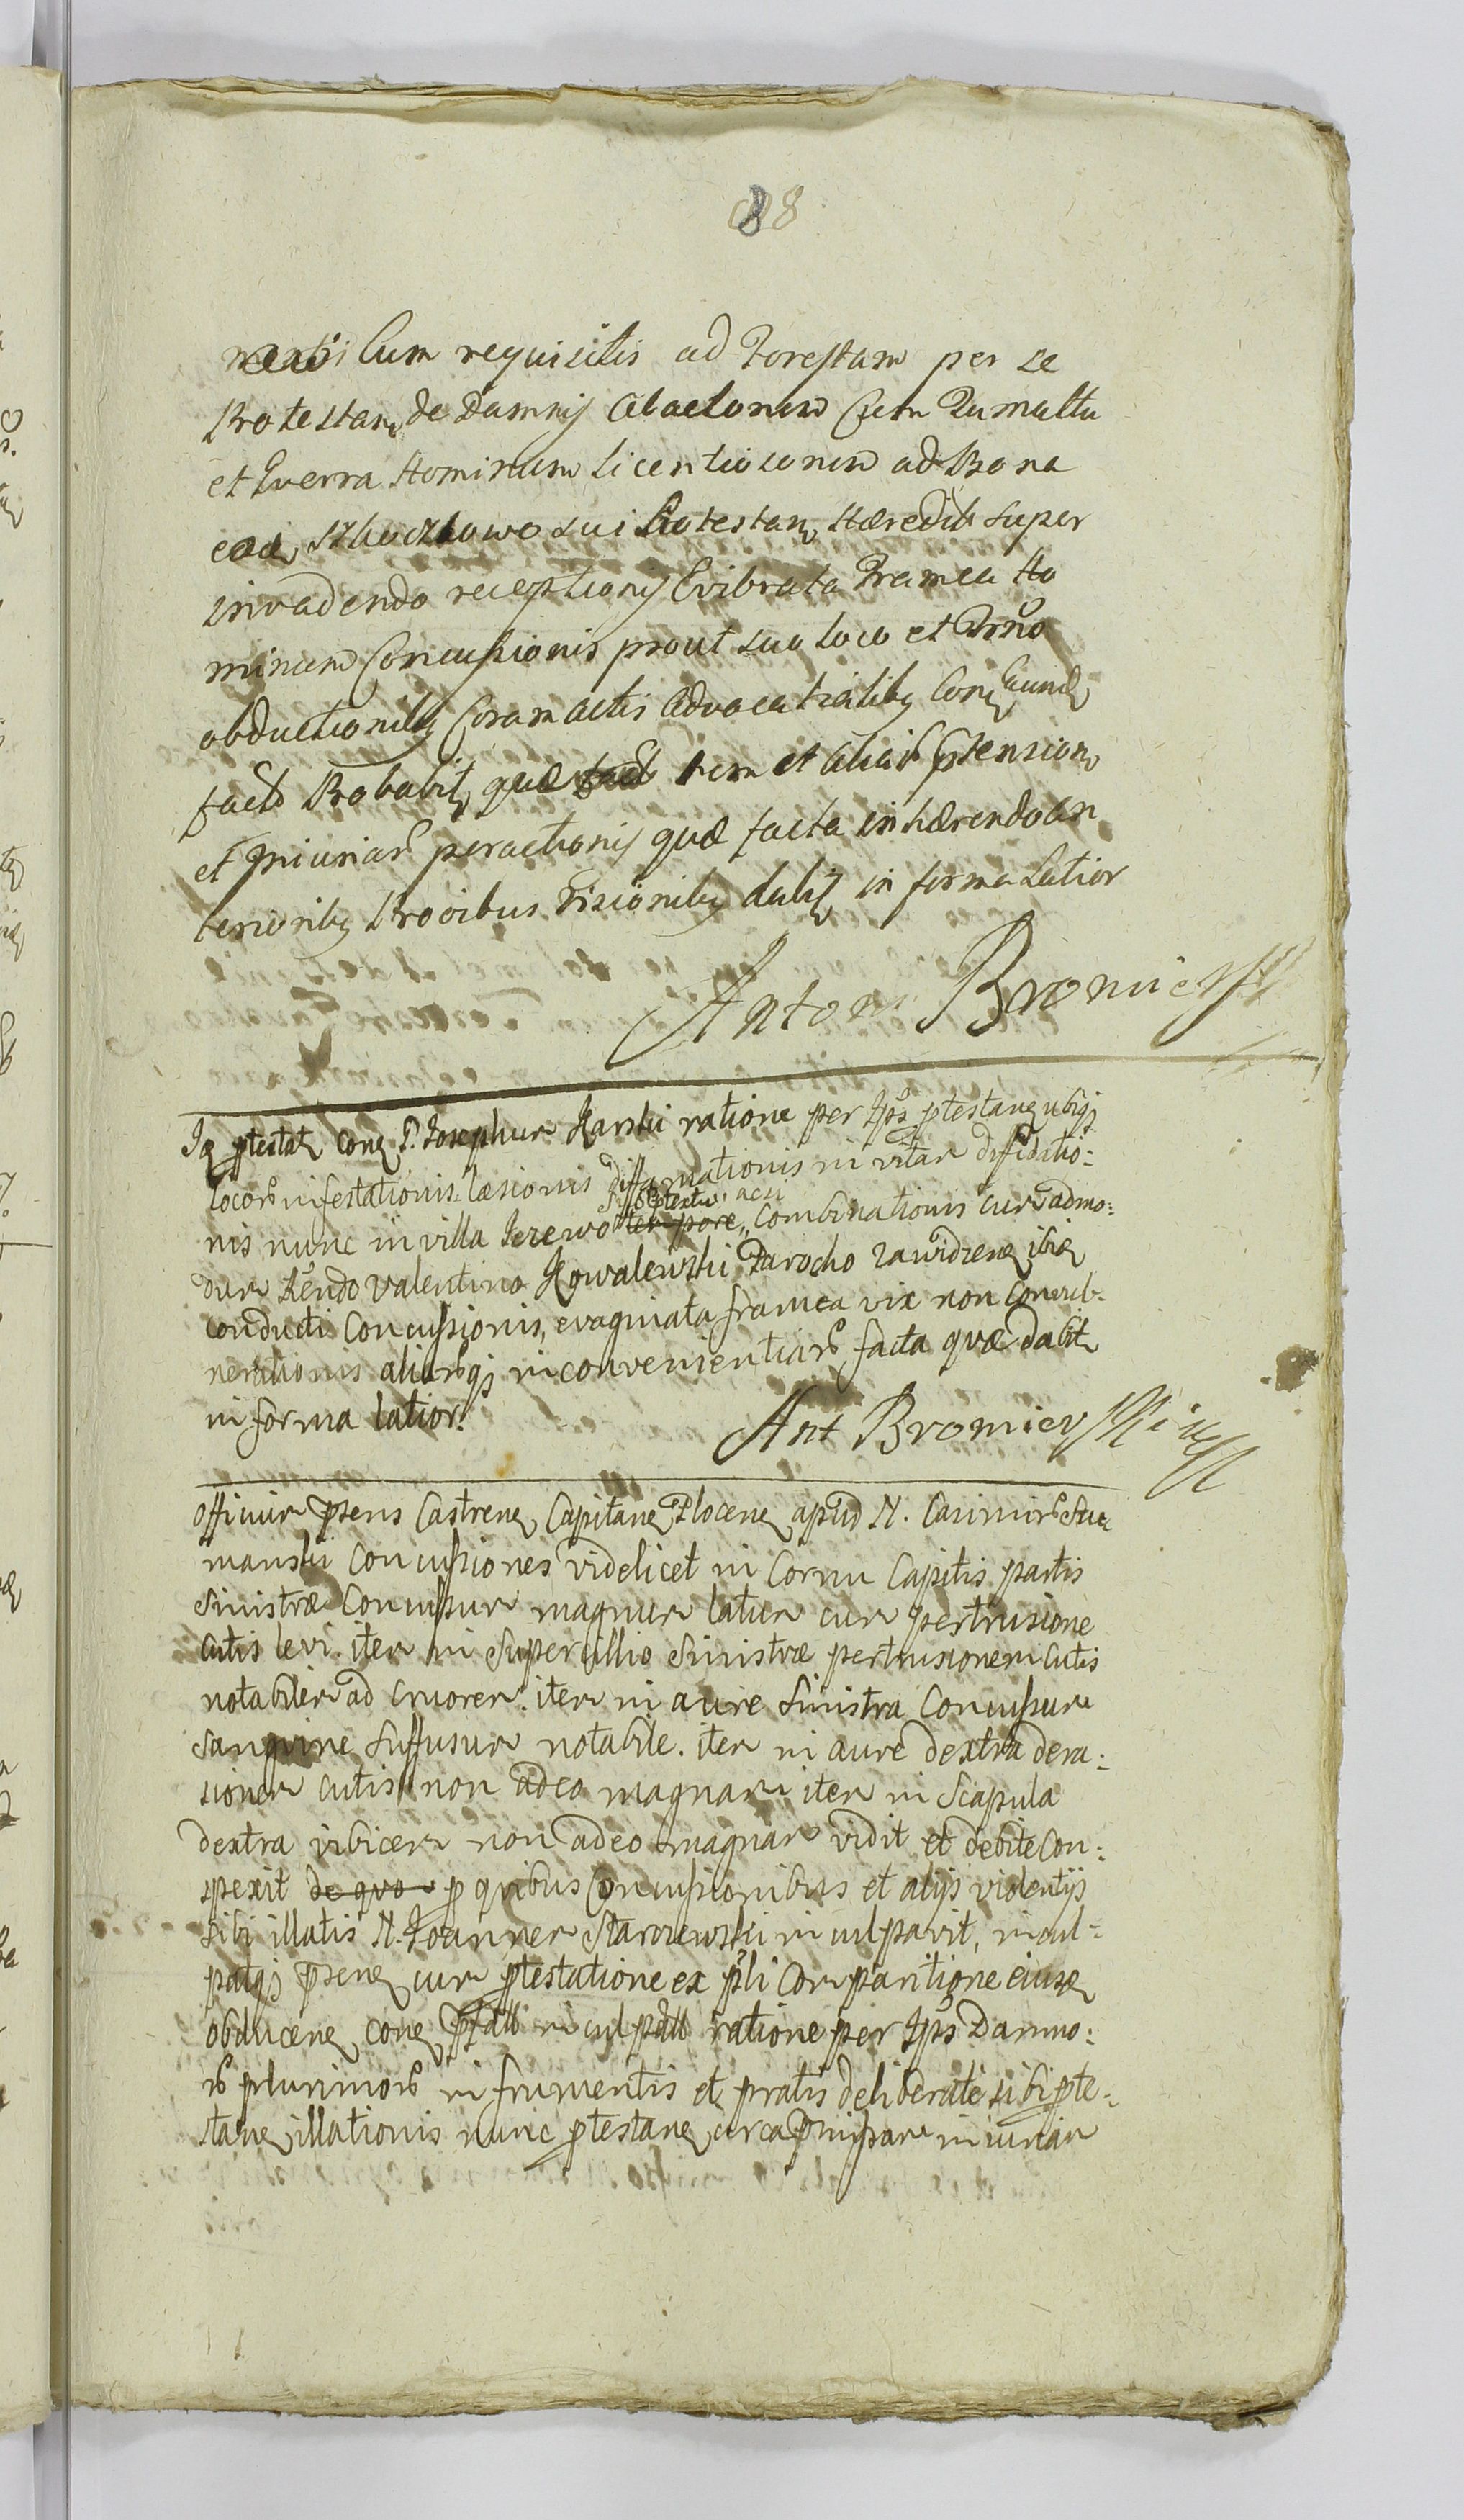 88
Cum requisitis ad Forestam per se
Protestan de Damnis Cum Tumultu
et Guerra Hominum Licentiosorum ad Bona
sui Protestan Hæredit super
invadendo receptionis Evibrata Framea Ho
minum Concussionis prout suo loco et Trno
obductionibq Coram actis advocatialibq Conq
facto Probabitq quæ rem et aliar ptension
et iniuriar peractionis quæ facta inhærendo an
terioribq Prioibus dabitq in forma Latior
Antoni Bromiersk
Iq ptestatq conq P. Josephur Karski ratione per Ips ptestanq ubiqꝫ
locor infestationis læsionis diffamationis in vitar diffiditio:
ptextu acsi
nis nunc in villa Jezewo tempore Combinationis cur admo:
dur Rendo Valentino Kowalewski Parocho Zawidzenq ibiq
conducti Concussionis, evaginata framea vix non Convul-
nerationis aliarqꝫ inconvenientiar facta quæ dabitq
in forma latior.
Ant Bromierski
Officiur psens Castrenq Capitanq Plocenq apud N. Casimir Szu
manski Concussiones videlicet in Cornu Capitis partis
Sinistræ Concussur magnur latur cur pertrusione
cutis levi. iter in Supercillio Sinistræ pertrusionem Cutis
notabiler ad cruorer. iter in aure Sinistra Concussur
sanguine Suffusur notabile. iter in aure dextra dera:
sioner cutis non adeo magnar iter in Scapula
dextra vibicer non adeo magnar vidit et debite con:
spexit de quo p quibus Concussionibus et alijs violentijs
sibi illatis N. Joanner Starozewski inculpavit, incul-
patqꝫ psenq cur ptestatione ex pli Comparitione eiusq
obducenq conq inculpatu ratione per Ips Damno:
r plurimor in frumentis et pratis deliberate sibi pte-
stanq illationis nunc ptestanq circa pmissar iniuriar